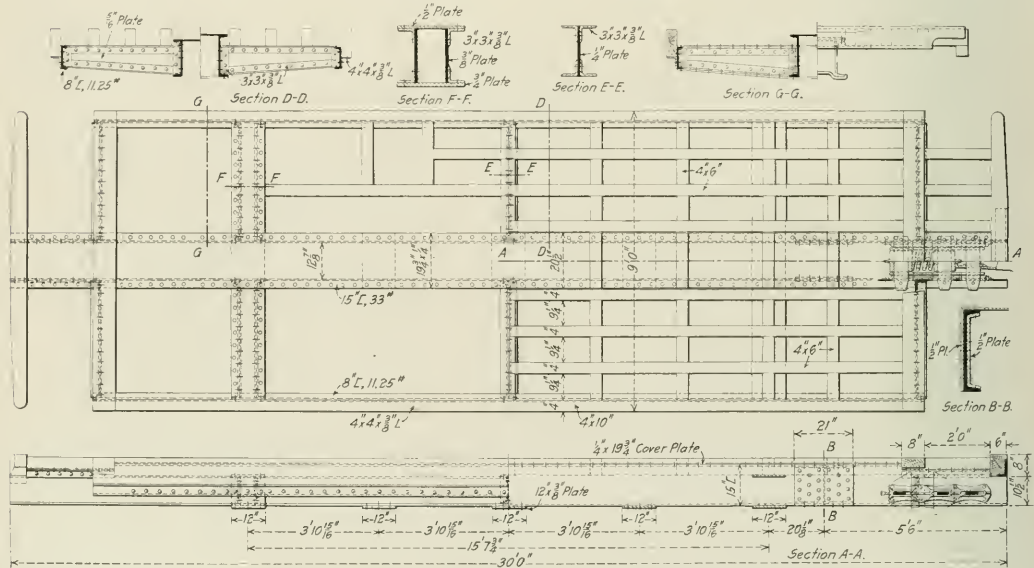 5/16" Plate
8"[, 11.25#
3x3x3/8 L
4"x4"x3/8" L
Section D-D.
1/2" Plate
3"x3"x3/8" L
3/8" Plate
3/4" Plate
Section F-F.
3"x3"x3/8" L
1/4" Plate
Section E-E.
Section G-G.
G
D
F F
E E
4"x6"
G
A
D
A
12 7/8"
19 3/4" x 1/4"
20 1/2"
9'0"
15"[, 33#
4"
9 1/4"
4"
9 1/4"
4"
9 1/4"
4"
4"x6"
8"[, 11.25#
4"x4"x3/8" L
4"x10"
1/2" Pl.
1/2" Plate
Section B-B.
1/4 x 19 3/4" Cover Plate
21"
B
8"
2'0"
6"
8"
10 1/2"
15"[
12 x 3/8" Plate
B
12"
12"
12"
12"
12"
3'10 15/16"
3'10 15/16"
3'10 15/16"
3'10 15/16"
20 1/8"
5'6"
15'7 3/4"
Section A-A.
30'0"